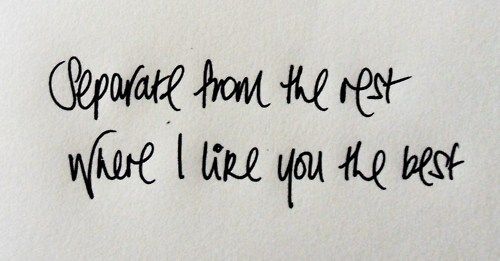 Separate from the rest
Where I like you the best